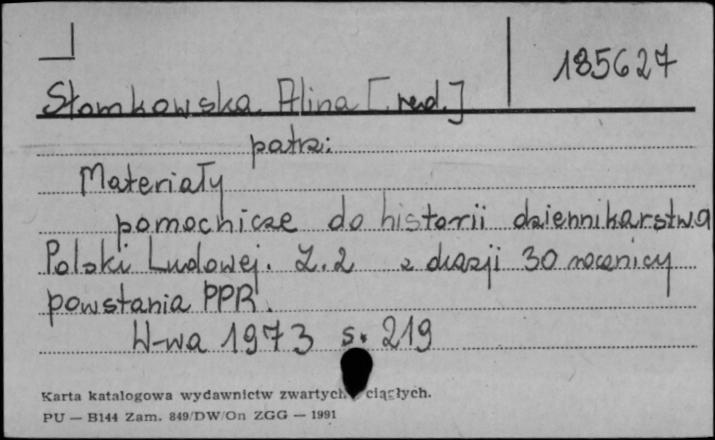 185627
Słomkowska Alina [red.]
patrz:
Materiały
pomocnicze do historii dziennikarstwa
Polski Ludowej. Z. 2 z okazji 30 rocznicy
powstania PPR.
W-wa 1973 s. 219
Karta katalogowa wydawnictw zwartych ciągłych.
PU — B144 Zam. 849/DW/On ZGG — 1991